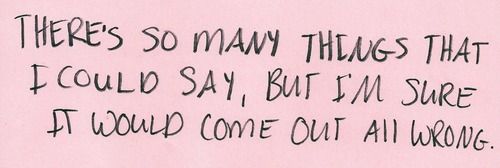 THERE'S SO MANY THINGS THAT
I COULD SAY, BUT I'M SURE
IT WOULD COME OUT All WRONG.